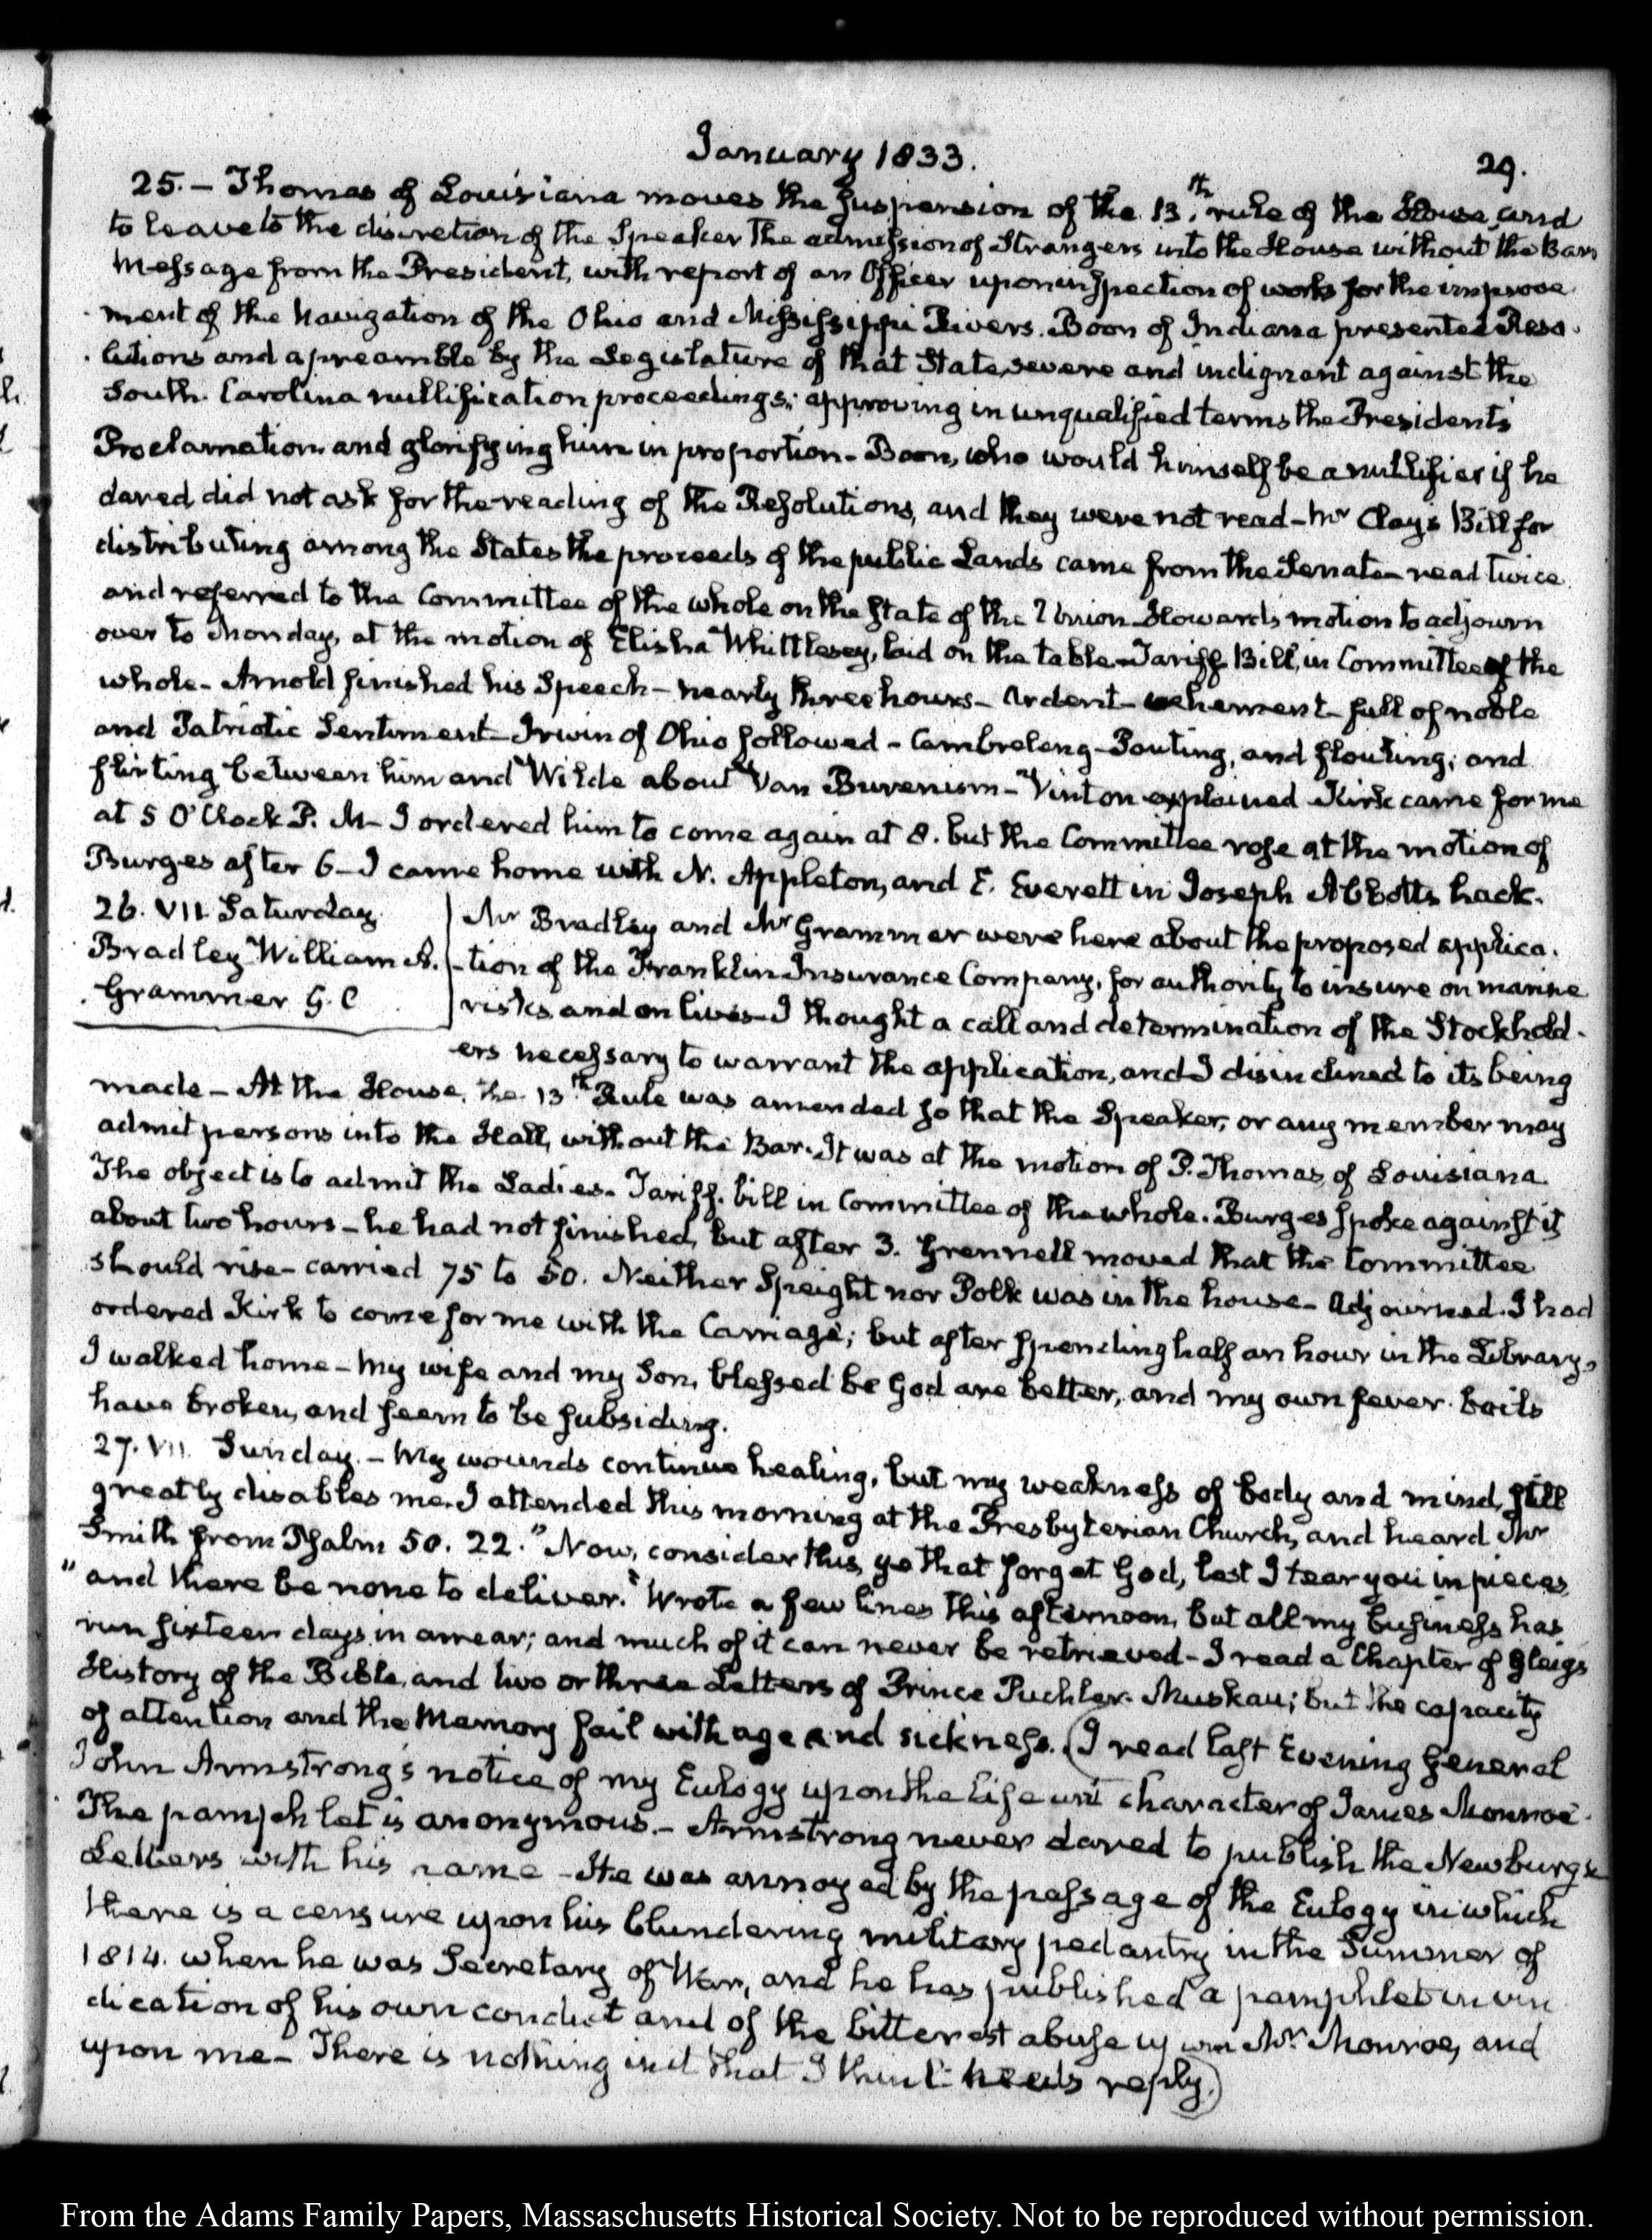 January 1833.
29.
25. – Thomas of Louisiana moves the suspension of the 13.th rule of the House, and
to leave to the discretion of the Speaker the admission of Strangers into the House without the Bar
Message from the President, with report of an Officer upon inspection of works for the improve
ment of the Navigation of the Ohio and Mississippi Rivers. Boon of Indiana presented Reso
lutions and a preamble by the Legislature of that State, severe and indignant against the
South Carolina nullification proceedings; approving in unqualified terms the President's
Proclamation and glorifying him in proportion – Boon, who would himself be a nullifier if he
dared did not ask for the reading of the Resolutions, and they were not read – Mr Clay's Bill for
distributing among the States the proceeds of the public Lands came from the Senate – read twice
and referred to the Committee of the whole on the state of the Union – Howard's motion to adjourn
over to Monday, at the motion of Elisha Whittlesey, laid on the table – Tariff Bill, in Committee of the
whole – Arnold finished his Speech – nearly three hours – ardent – vehement – full of noble
and Patriotic Sentiment – Irwin of Ohio followed – Cambreleng – Pouting, and flouting; and
flirting between him and Wilde about Van Burenism – Vinton explained Kirk came for me
at 5 O'Clock P. M – I ordered him to come again at 8. but the Committee rose at the motion of
Burges after 6 – I came home with N. Appleton, and E. Everett in Joseph Abbotts hack.
26. VII. Saturday.
Bradley William A.
Grammer G. C
Mr Bradley and Mr Grammer were here about the proposed applica.
-tion of the Franklin Insurance Company, for authority to insure on marine
risks and on lives – I thought a call and determination of the Stockhold-
-ers necessary to warrant the application, and I disinclined to its being
made – At the House, the 13th Rule was amended so that the Speaker, or any member may
admit persons into the Hall, without the Bar. It was at the motion of P. Thomas, of Louisiana.
The object is to admit the Ladies. Tariff. bill in Committee of the whole. Burges spoke against it
about two hours – he had not finished, but after 3. Grennell moved that the Committee
should rise – carried 75 to 50. Neither Speight nor Polk was in the house – Adjourned. I had
ordered Kirk to come for me with the Carriage; but after spending half an hour in the Library,
I walked home – My wife and my Son, blessed be God are better, and my own fever boils
have broken, and seem to be subsiding.
27. VII. Sunday. – My wounds continue healing, but my weakness of body and mind, still
greatly disables me. I attended this morning at the Presbyterian Church, and heard Mr
Smith from Psalm 50. 22. "Now, consider this, ye that forget God, lest I tear you in pieces,
"and there be none to deliver." Wrote a few lines this afternoon, but all my business has
run sixteen days in arrear; and much of it can never be retrieved – I read a Chapter of Gleigs
History of the Bible, and two or three Letters of Prince Puckler. Muskau; but the capacity
of attention and the Memory fail with age and sickness. (I read last Evening General
John Armstrong's notice of my Eulogy upon the Life and character of James Monroe.
The pamphlet is anonymous. – Armstrong never dared to publish the Newburgh
Letters with his name – He was annoyed by the passage of the Eulogy in which
there is a censure upon his blundering military pedantry in the Summer of
1814. when he was Secretary of War, and he has published a pamphlet in vin
dication of his own conduct and of the bitterest abuse upon Mr. Monroe, and
upon me – There is nothing in it that I think needs reply.)
From the Adams Family Papers, Massaschusetts Historical Society. Not to be reproduced without permission.